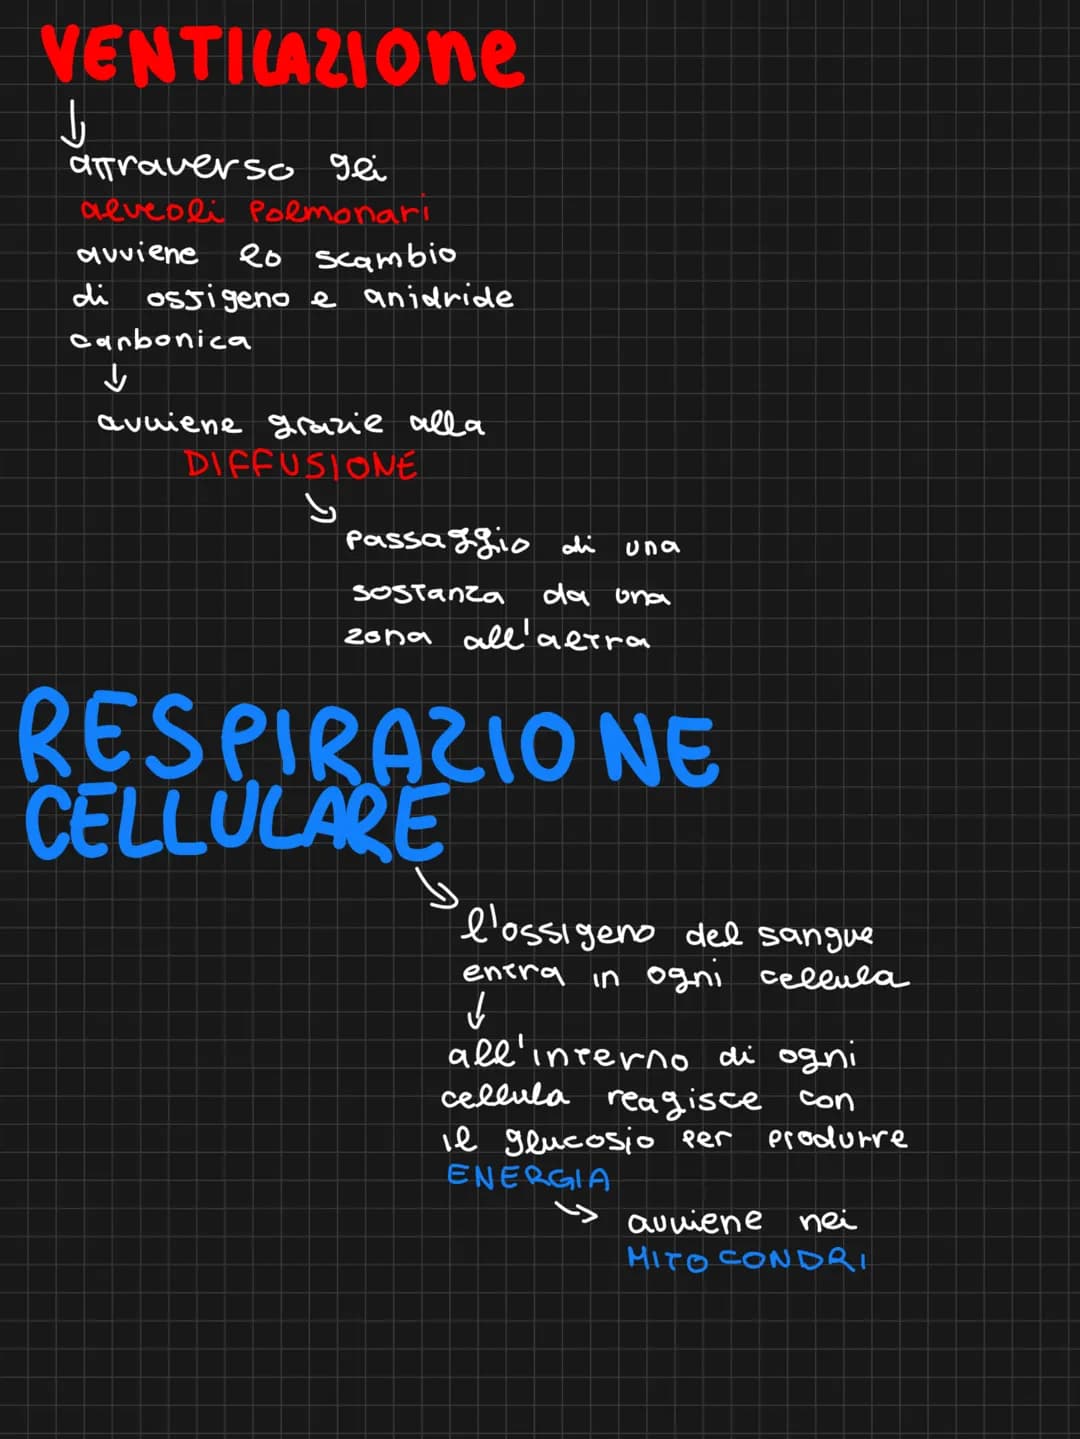 VENTILAZIONe
attraverso gli
alveoli Polmonari
avviene lo scambio
di ossigeno e anidride
carbonica
avviene grazie alla
DIFFUSIONE
passaggio di una
sostanza da una
zona all'altra
RESPIRAZIONE
CELLULARE
l'ossigeno del sangue
entra in ogni cellula
all'interno di ogni
cellula reagisce con
il glucosio per produrre
ENERGIA
avviene nei
MITOCONDRI